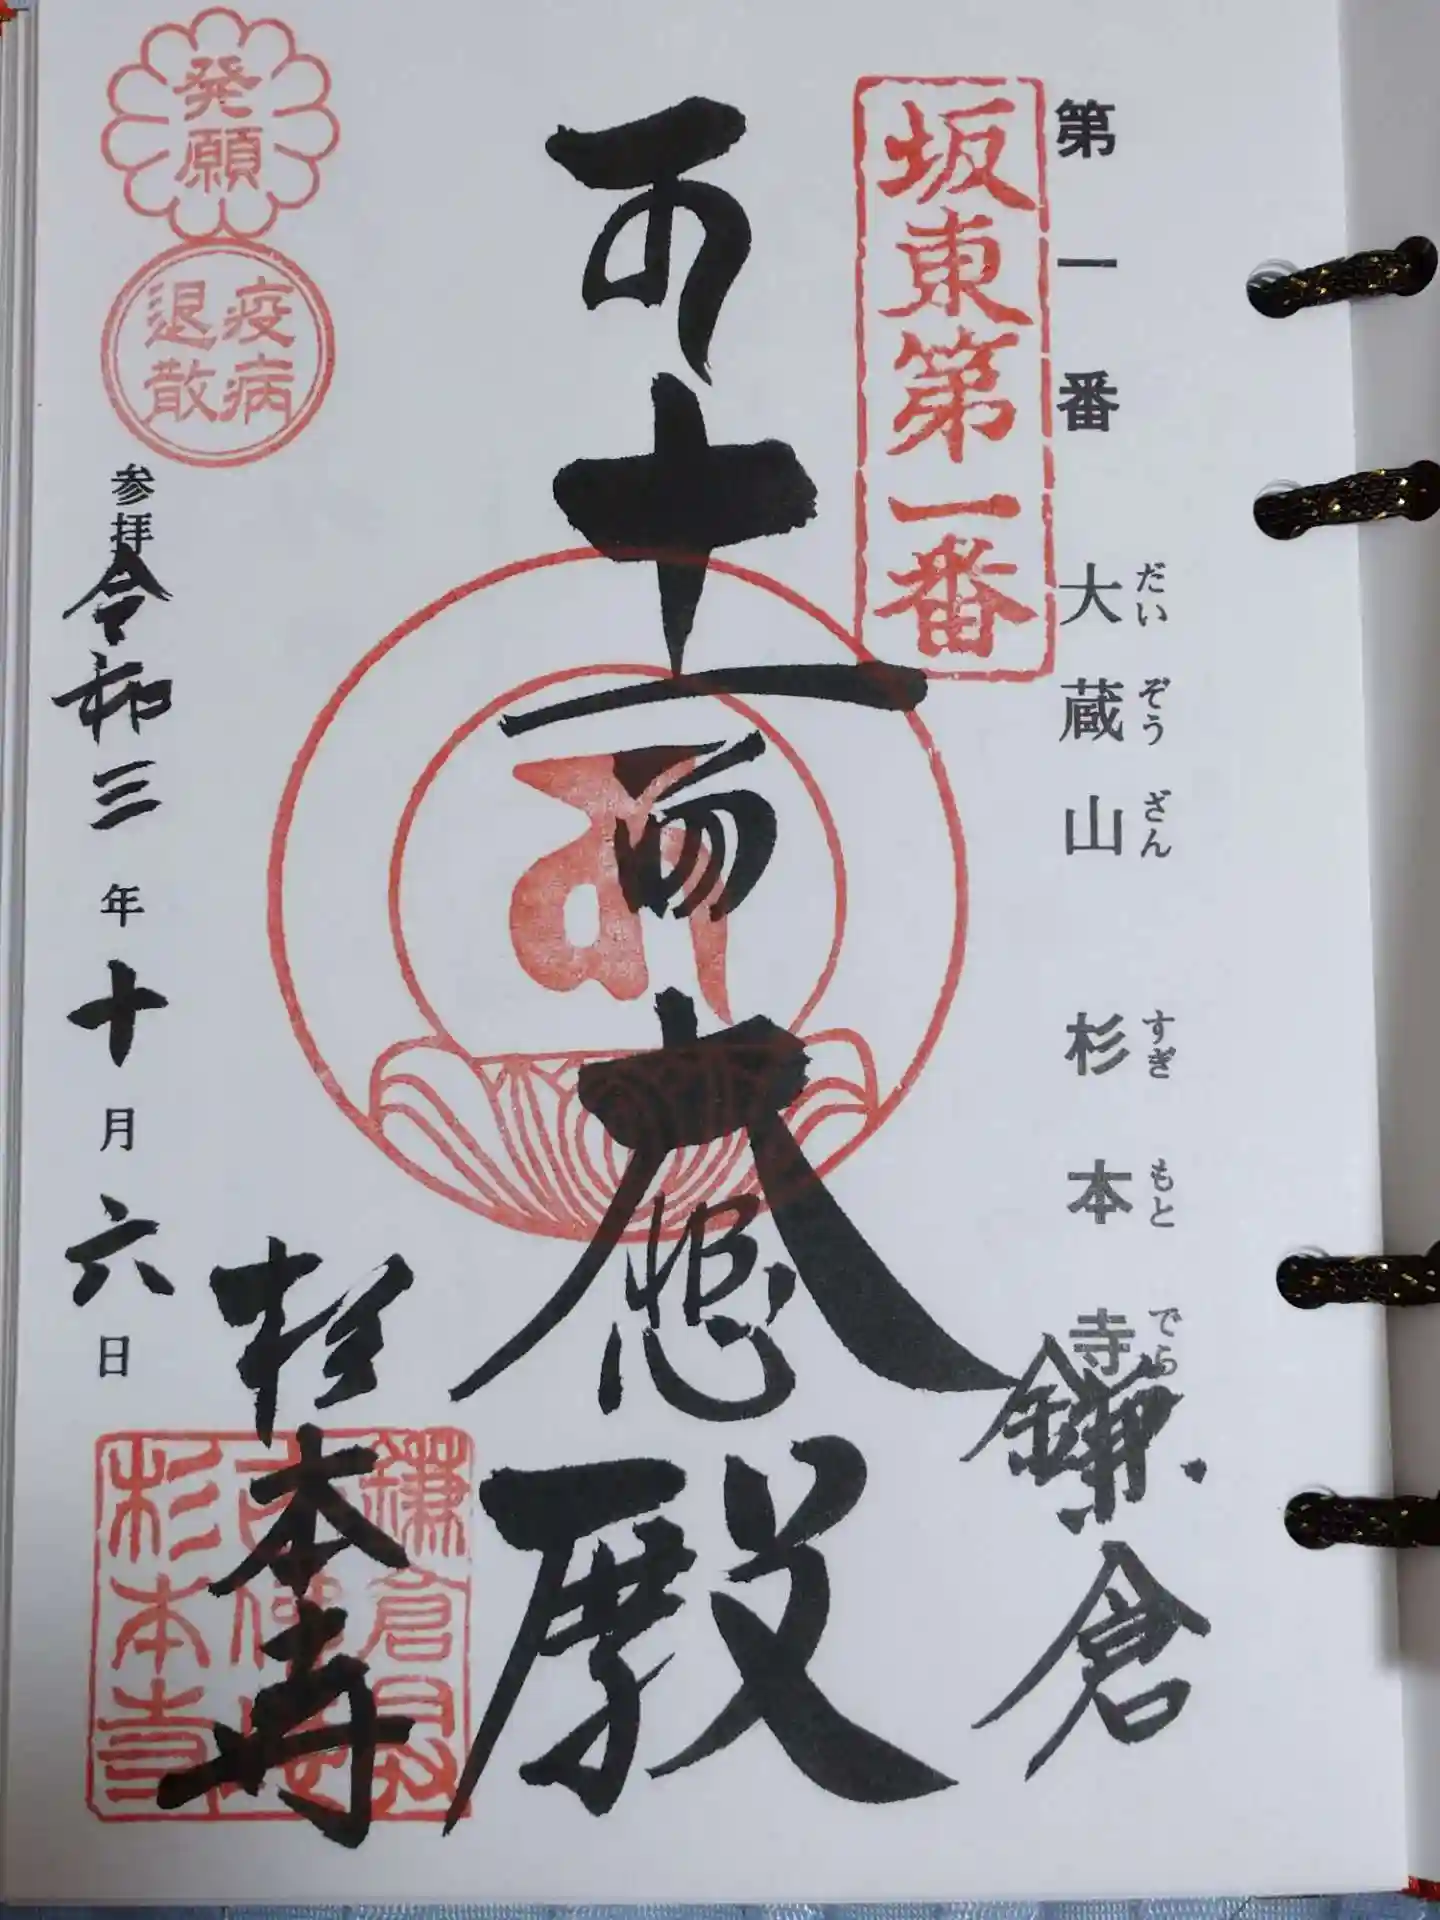 第一番 大蔵山 杉本寺
だいぞうざん すぎもとでら
鎌倉
坂東第一番
十一面大悲殿
発願
疫病
退散
杉本寺
鎌倉最
古佛地
杉本寺
参拝 令和三年十月六日